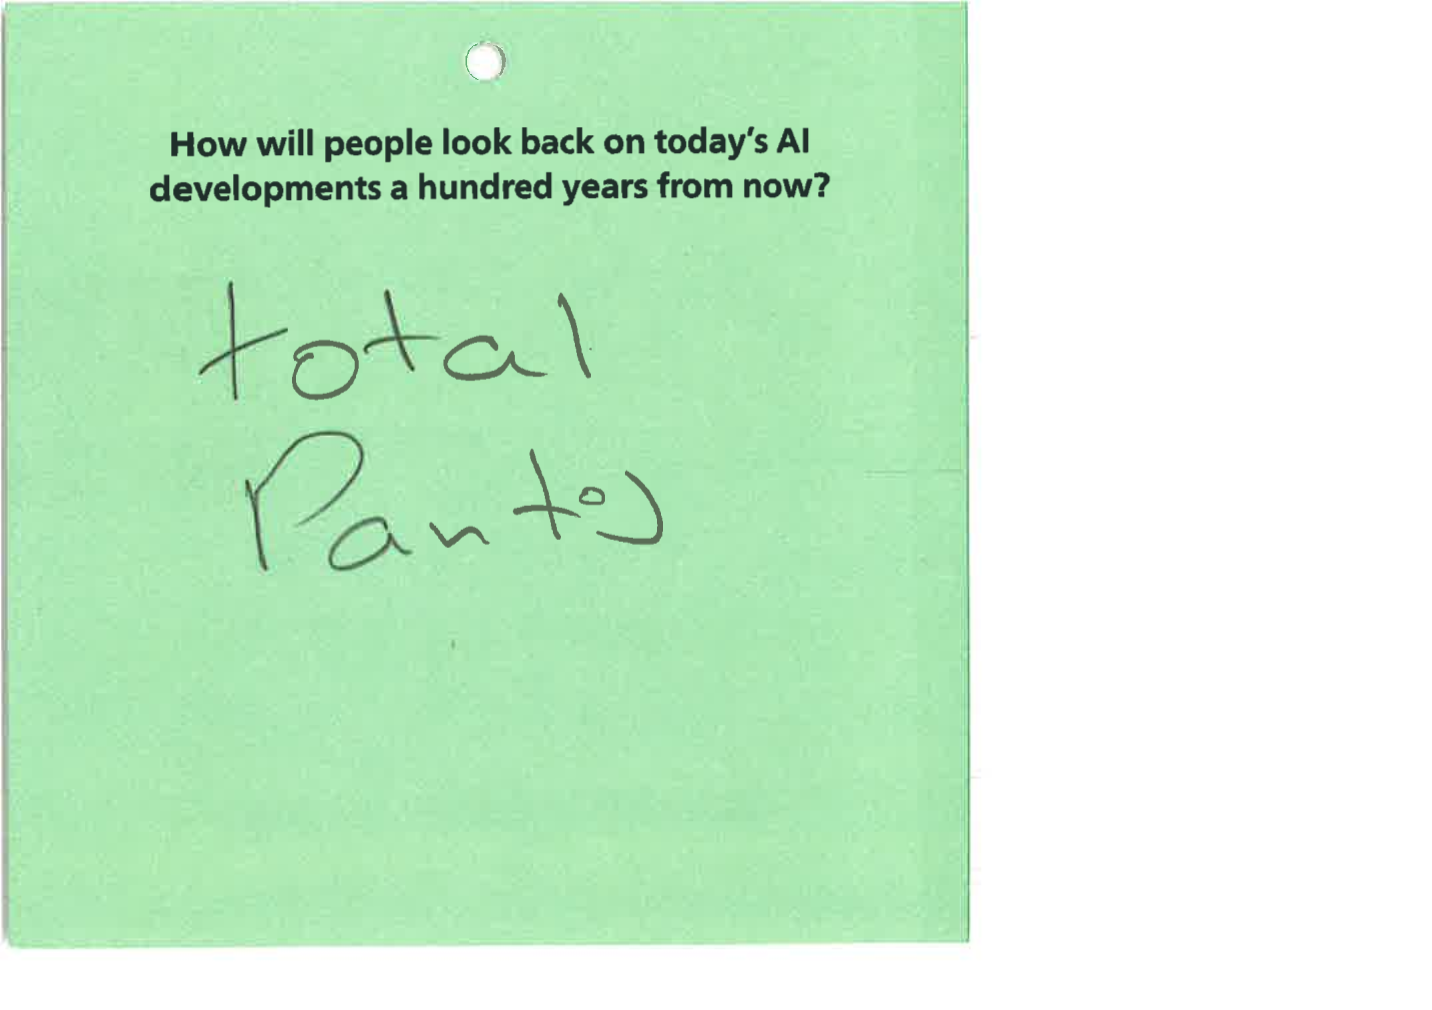 How will people look back on today's AI
developments a hundred years from now?
total
Pants